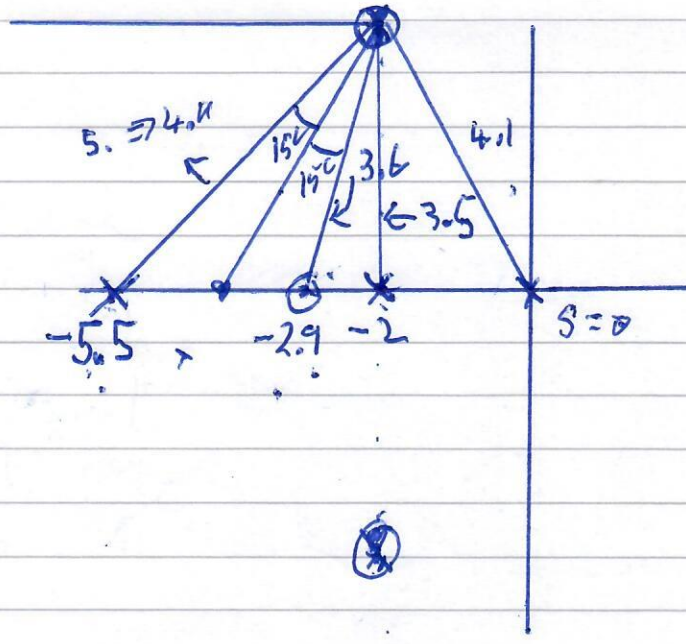 4.1
15°
15°
3.6
← 3.5
-5.5
-2.9
-2
S = 0